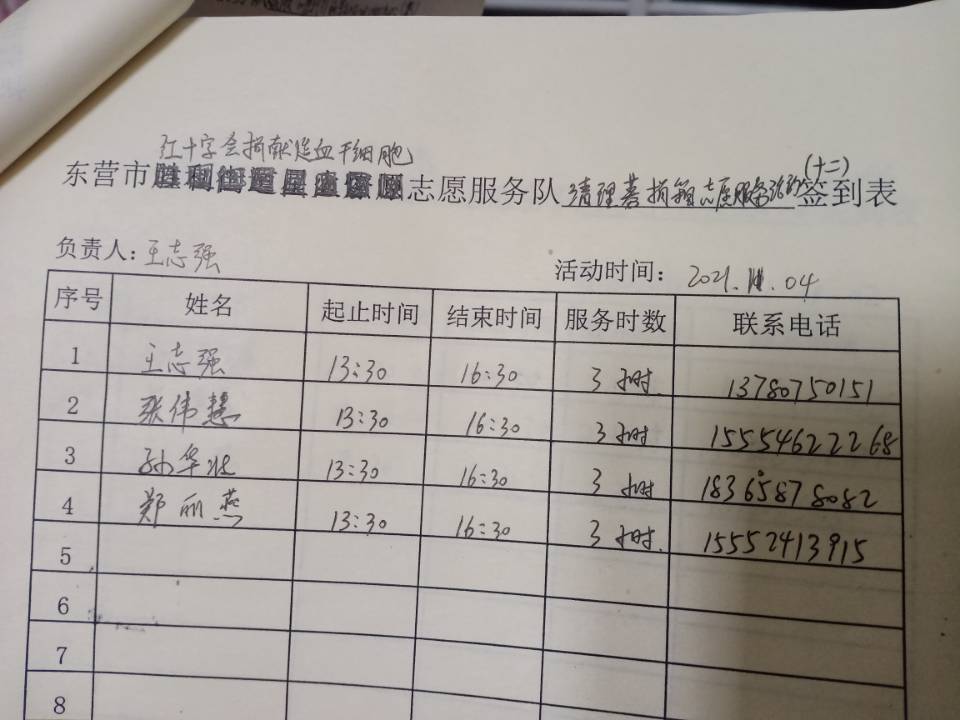 红十字会捐献造血干细胞
(十二)
东营市志愿服务队清理善捐箱志愿服务活动签到表
负责人：王志强
活动时间： 2021.11.04
序号 姓名 起止时间 结束时间 服务时数 联系电话
1 王志强 13:30 16:30 3小时 13780750151
2 张伟慧 13:30 16:30 3小时 15554622268
3 孙华北 13:30 16:30 3小时 18365878082
4 郑丽燕 13:30 16:30 3小时 15552413915
5
6
7
8